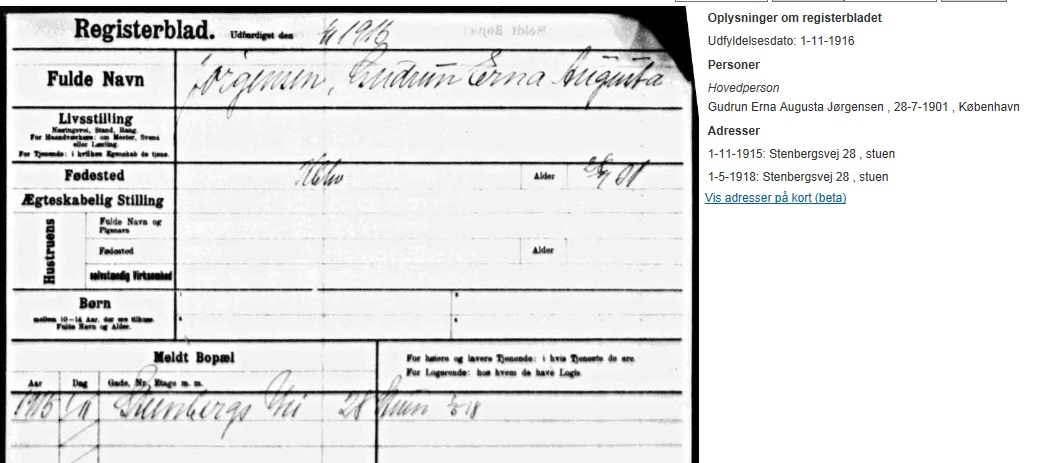 Registerblad. Udfærdiget den 1/11 1916
Fulde Navn Jørgensen, Gudrun Erna Augusta
Livsstilling
Næringsvei, Stand, Rang.
For Haandværkere: om Mester, Svend
eller Lærling.
For Tjenende: i hvilken Egenskab de tjene.
Fødested Kbhv Alder 28/7 01
Ægteskabelig Stilling
Hustruens
Fulde Navn og
Pigenavn
Fødested Alder
selvstændig Virksomhed
Børn
mellem 10-14 Aar, der ere tilhuse.
Fulde Navn og Alder.
Meldt Bopæl
For høiere og lavere Tjenende: i hvis Tjeneste de ere.
For Logerende: hos hvem de have Logis.
Aar Dag Gade, Nr., Etage m. m.
1915 1/11 Stenbergs Vei 28 Stuen 1/5 18
Oplysninger om registerbladet
Udfyldelsesdato: 1-11-1916
Personer
Hovedperson
Gudrun Erna Augusta Jørgensen , 28-7-1901 , København
Adresser
1-11-1915: Stenbergsvej 28 , stuen
1-5-1918: Stenbergsvej 28 , stuen
Vis adresser på kort (beta)